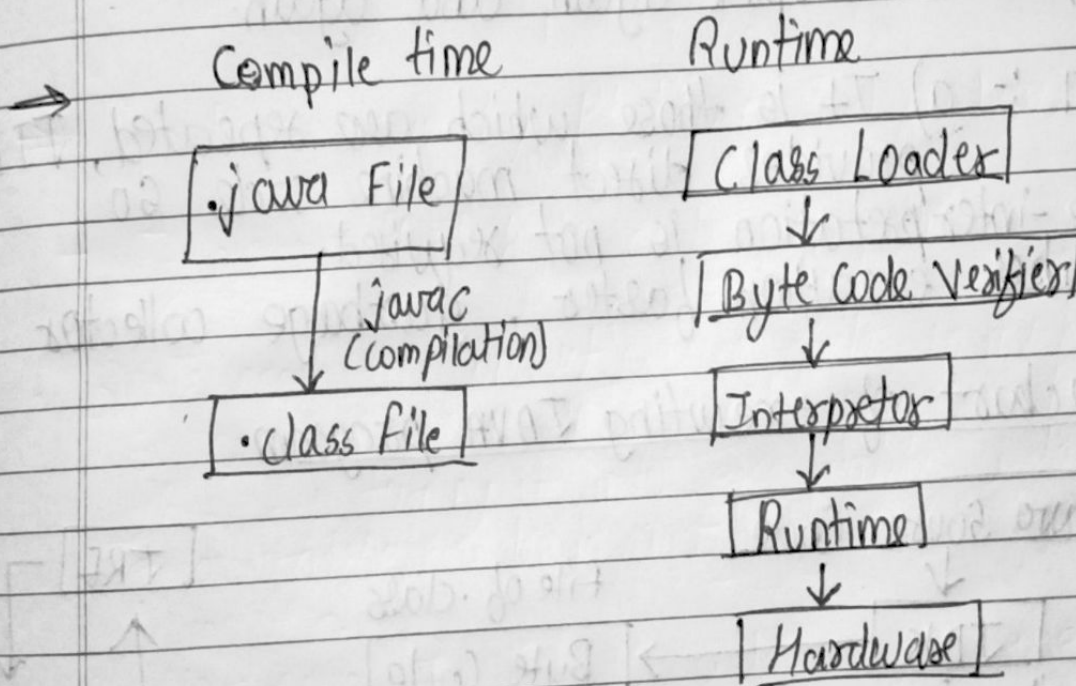 Compile time
Runtime
.java File
javac
(compilation)
.class file
Class Loader
Byte Code Verifier
Interpretor
Runtime
Hardware